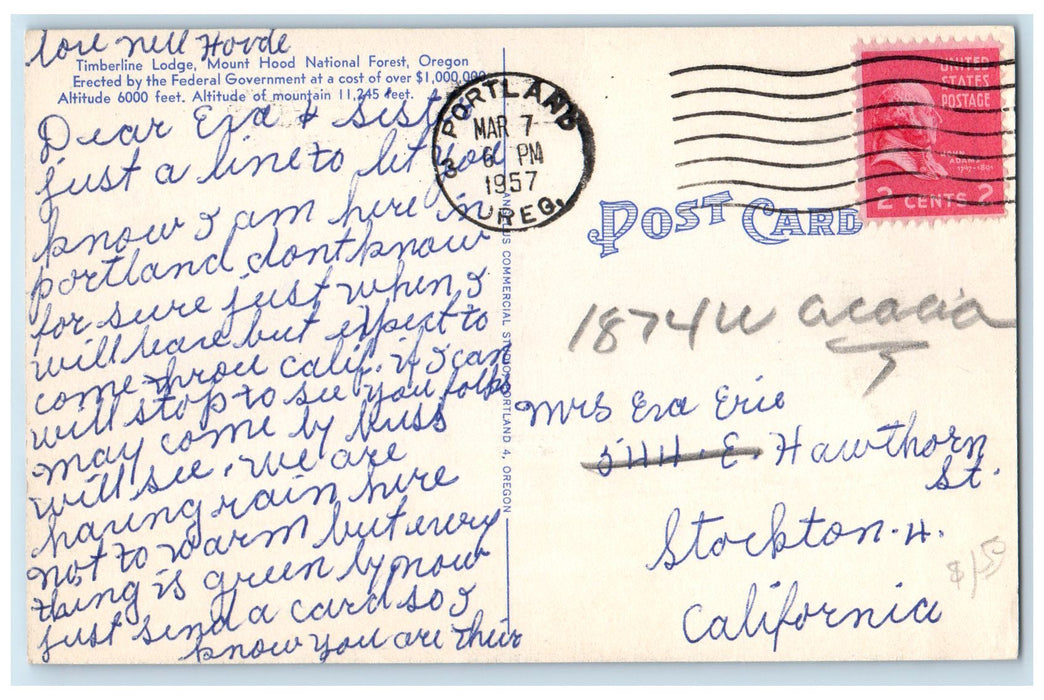 love Nell Hovde
Timberline Lodge, Mount Hood National Forest, Oregon
Erected by the Federal Government at a cost of over $1,000,000
Altitude 6000 feet. Altitude of mountain 11,245 feet.
Dear Eva & Sist
just a line to let you
know I am here in
portland dont know
for sure just when I
will leave but expect to
come throu calif. if I can
will stop to see you folks
may come by buss
will see. we are
having rain here
not to warm but every
thing is green by now
just send a card so I
know you are their
PORTLAND
MAR 7
6 PM
1957
OREG.
3
UNITED
STATES
POSTAGE
JOHN
ADAMS
1797-1801
2 CENTS 2
POST CARD
COMMERCIAL STUDIO, PORTLAND 4, OREGON
1874 W acacia
Mrs Eva Erie
544. E. Hawthorn
St.
Stockton. 4.
California
$1.50